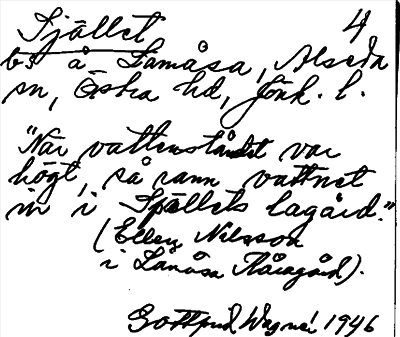 Sjället 4
bs å Lamåsa, Alseda
sn, Östra hd, Jönk. l.
"När vattenståndet var
högt, så rann vattnet
in i Sjællets lagård."
(Ellen Nilsson
i Lamåsa Norregård).
Gottfrid Wagnér 1946